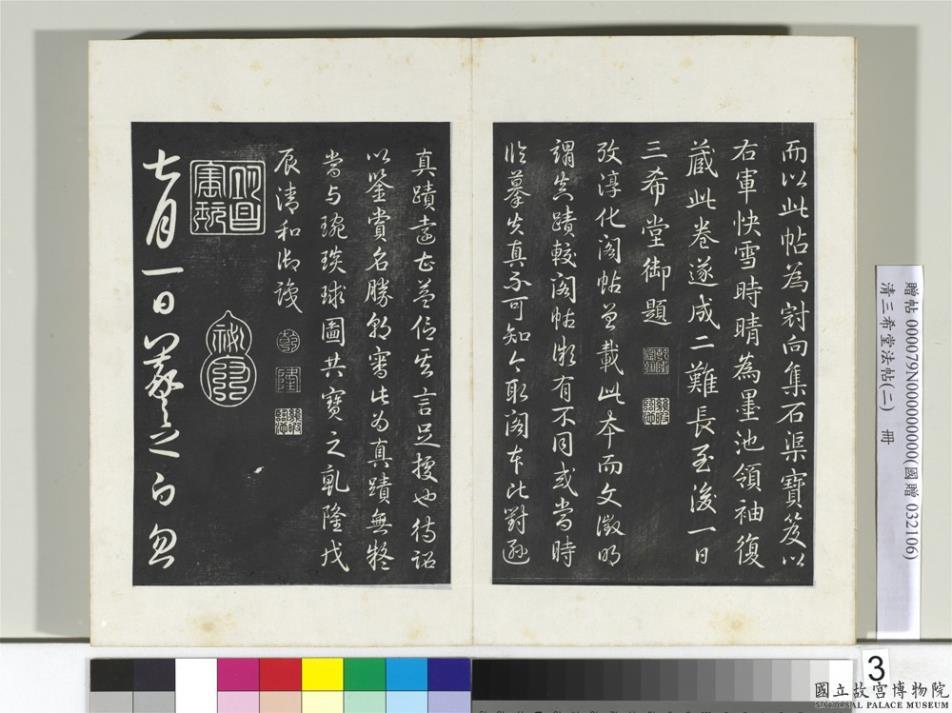 而以此帖為冠向集石渠寶笈以
右軍快雪時晴為墨池領袖復
藏此卷遂成二難長至後一日
三希堂御題
攷淳化閣帖曾載此本而文徵明
謂真蹟較閣帖微有不同或當時
臨摹失真不可知今取閣本比對遜
真蹟遠甚益信其言足據也待詔
以鑒賞名勝朝審此為真蹟無疑
當與琬琰球圖共寶之乾隆戊
辰清和御識
乾
隆
祕
七月一日羲之白忽
贈帖 000079N000000000(國贈 032106)
清三希堂法帖(二) 冊
3
國立故宮博物院
NATIONAL PALACE MUSEUM